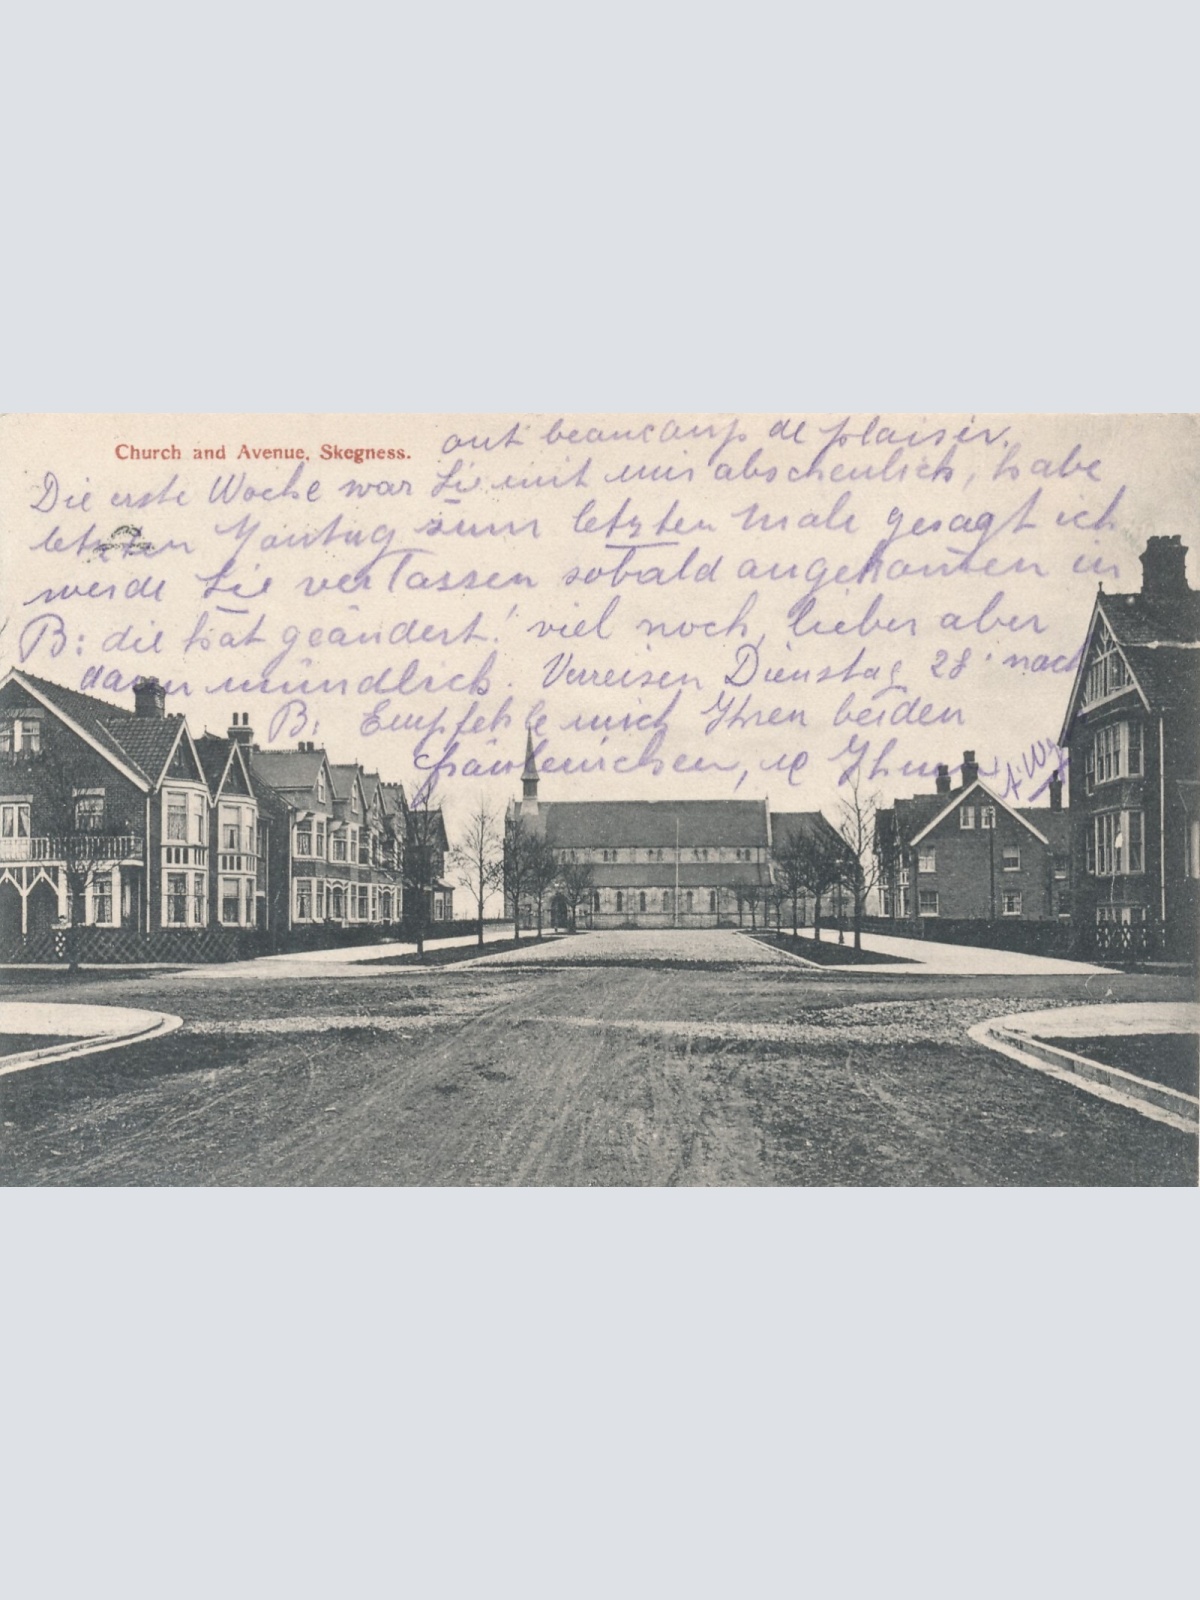 Church and Avenue, Skegness.
ont beaucoup de plaisir.
Die erste Woche war Sie mit mir abscheulich, habe
letzten Montag zum letzten male gesagt ich
werde Sie verlassen sobald angekommen in
B: die hat geändert! viel noch, lieber aber
davon mündlich. Verreisen Dienstag 28 nach
B: Empfehle mich Ihren beiden
Fräuleinchen, u Ihnen